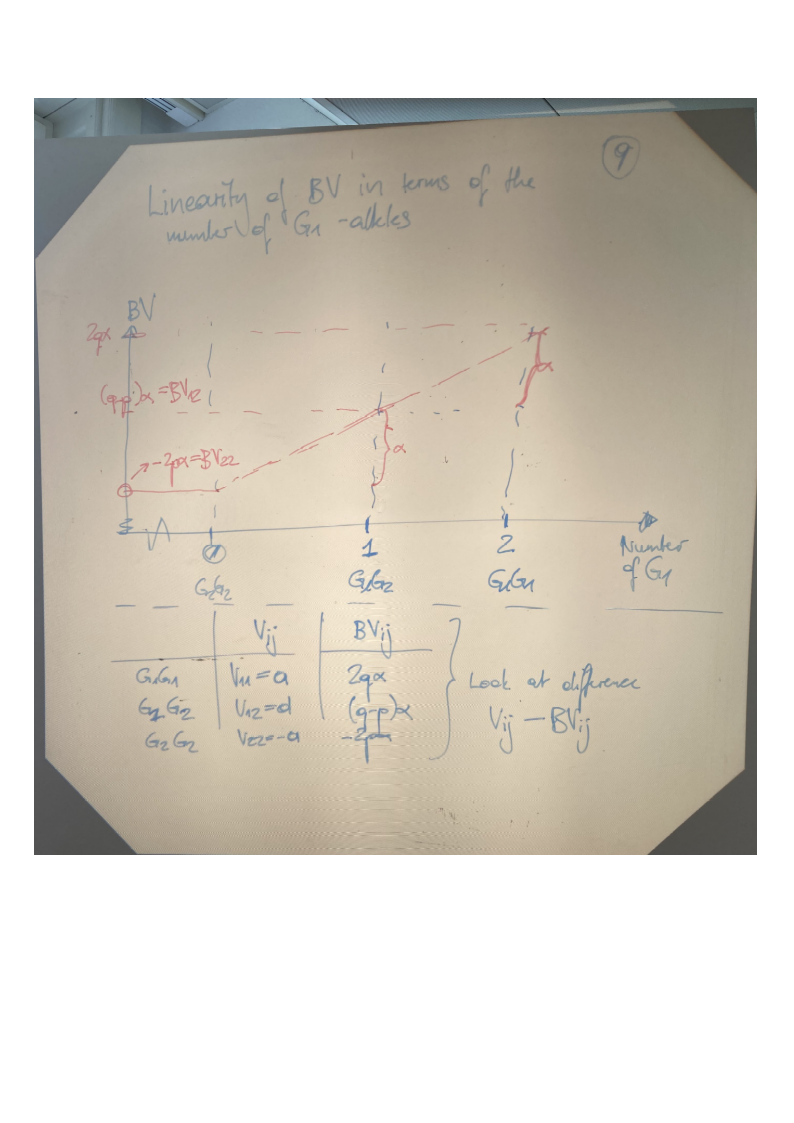 9
Linearity of BV in terms of the
number of G1 -alleles
BV
2qα
(q-p)α = BV12
-2pα = BV22
α
α
0
1
2
Number
of G1
G2G2
G1G2
G1G1
Vij
BVij
G1G1
V11 = a
2qα
G1G2
V12 = d
(q-p)α
G2G2
V22 = -a
-2pα
Look at difference
Vij - BVij